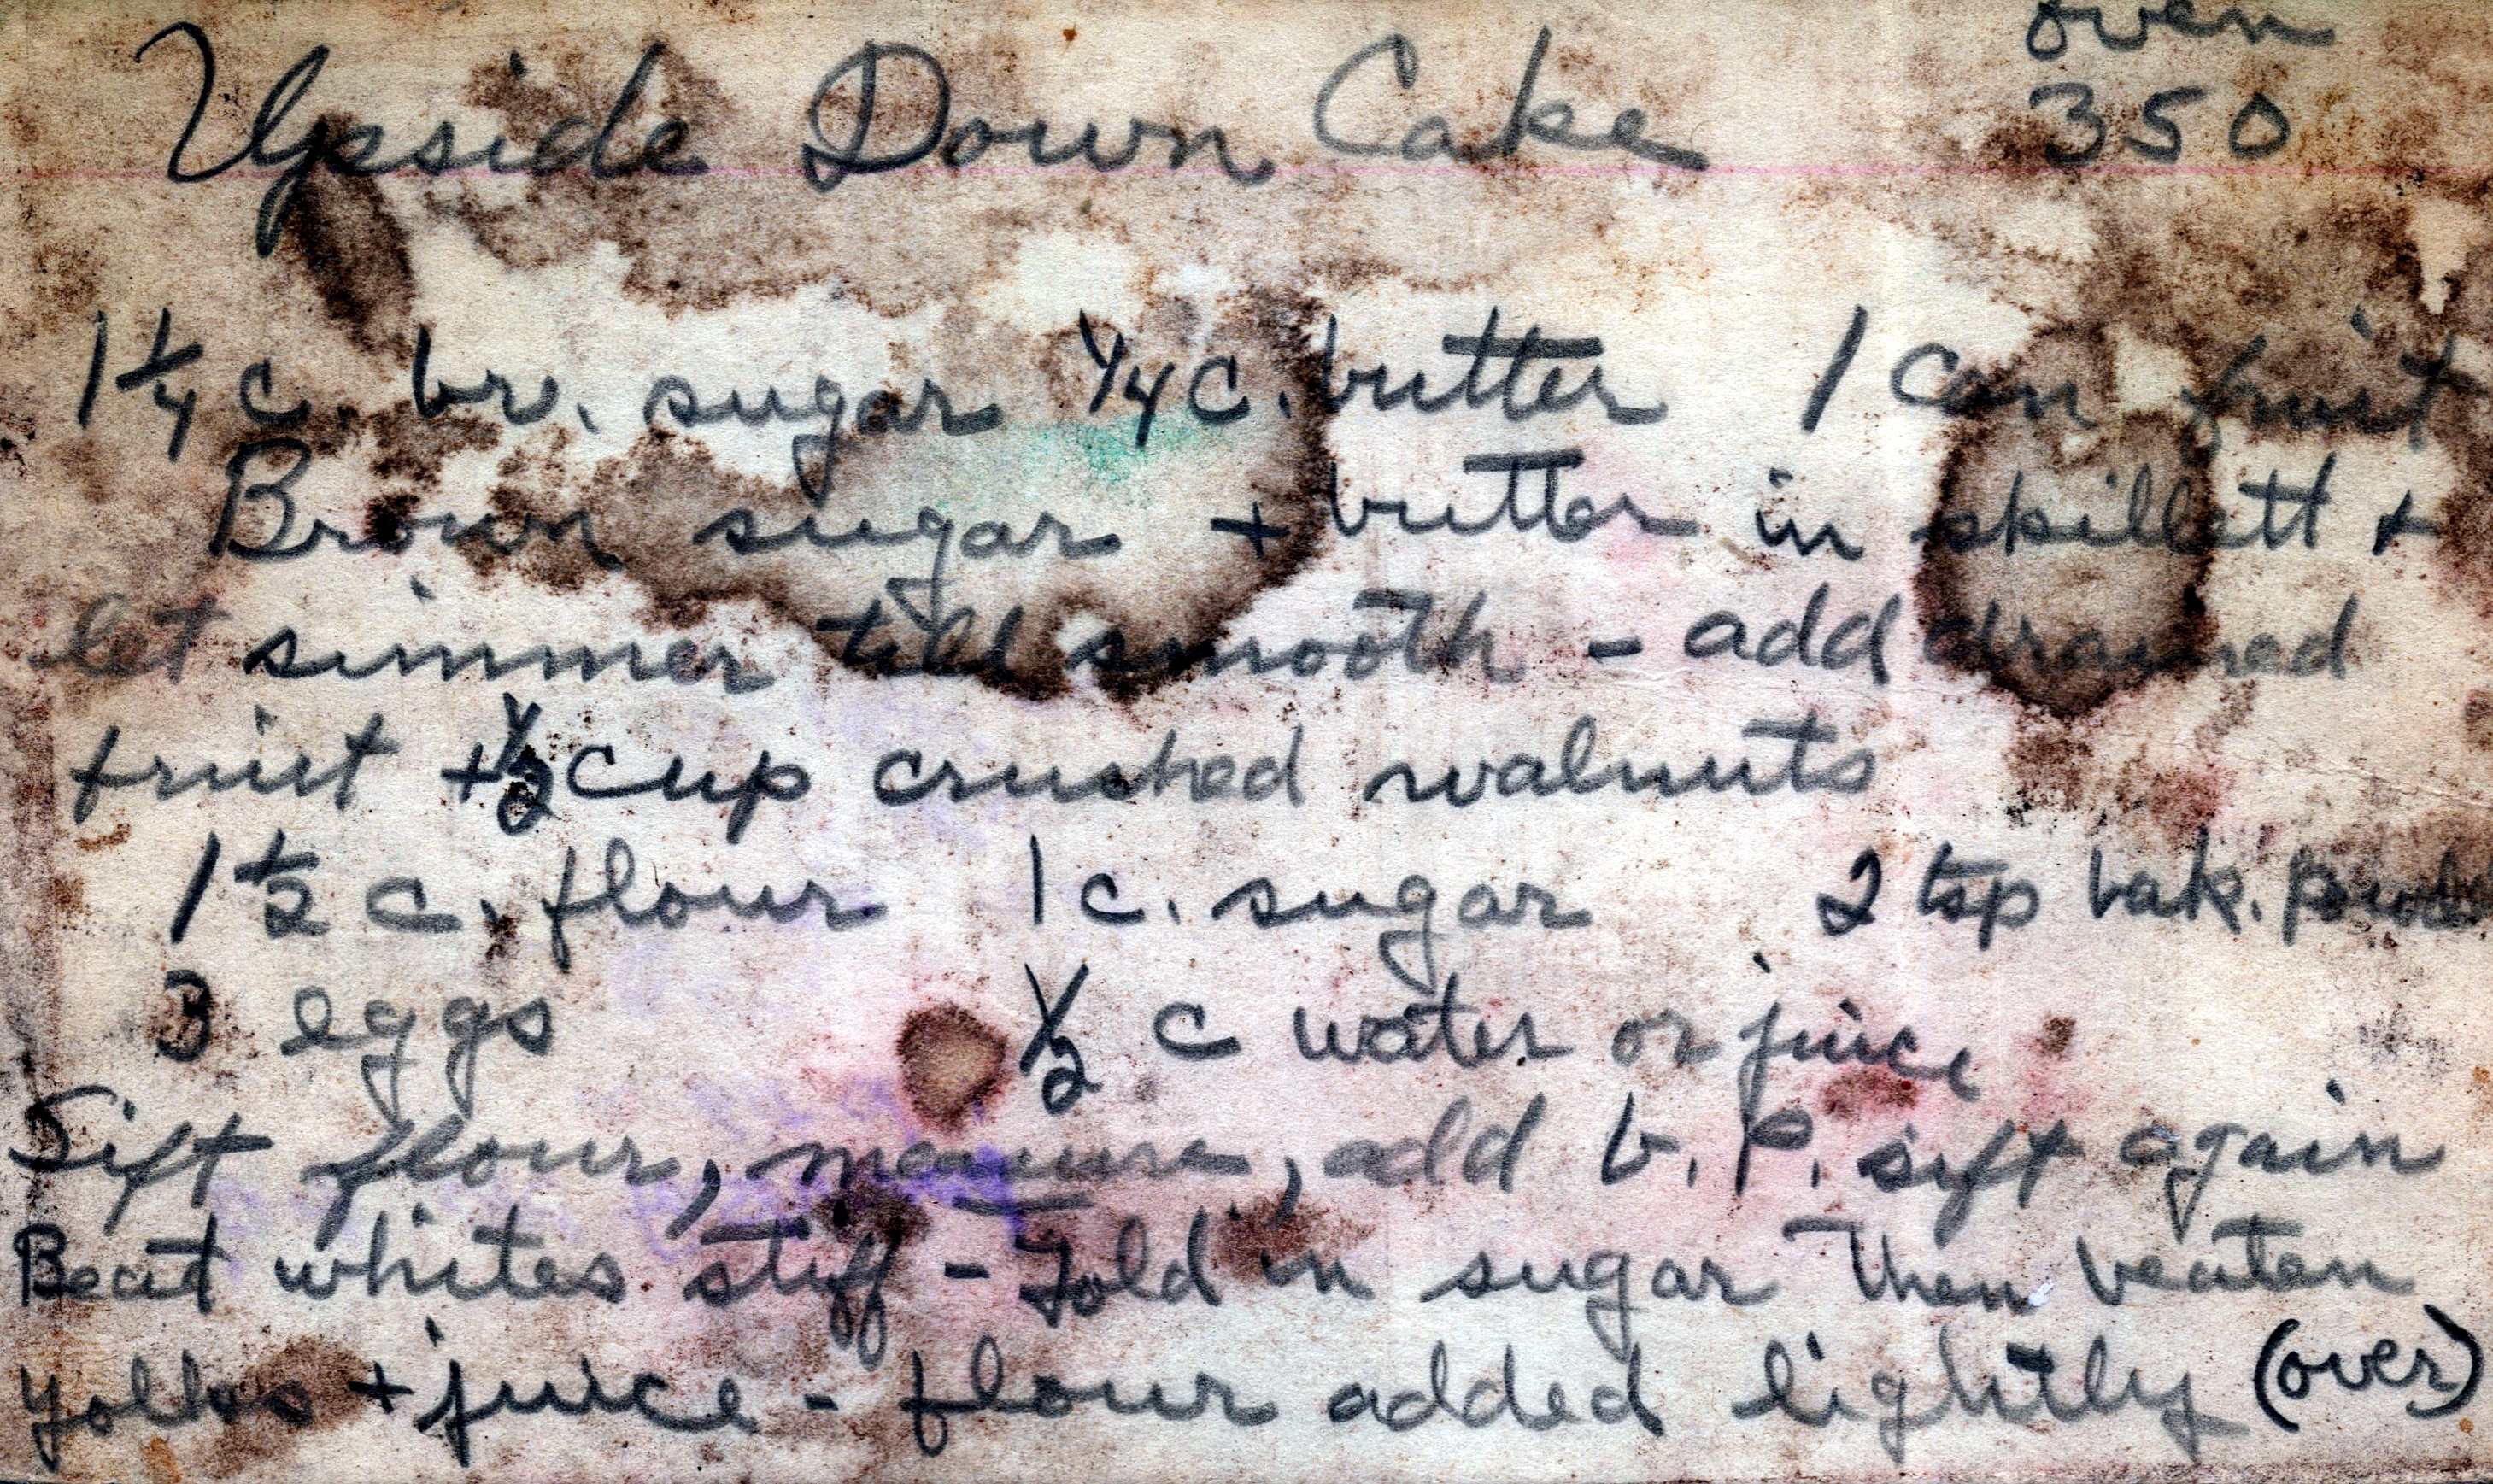 oven
Upside Down Cake 350
1 1/4 c. br. sugar 1/4 c. butter 1 can fruit
Brown sugar + butter in skillett +
let simmer till smooth - add drained
fruit + 1/2 cup crushed walnuts
1 1/2 c. flour 1 c. sugar 2 tsp bak. powd
3 eggs 1/2 c water or juice
Sift flour, measure, add b. P. sift again
Beat whites stiff - Fold in sugar then beaten
yolks + juice - flour added lightly (over)